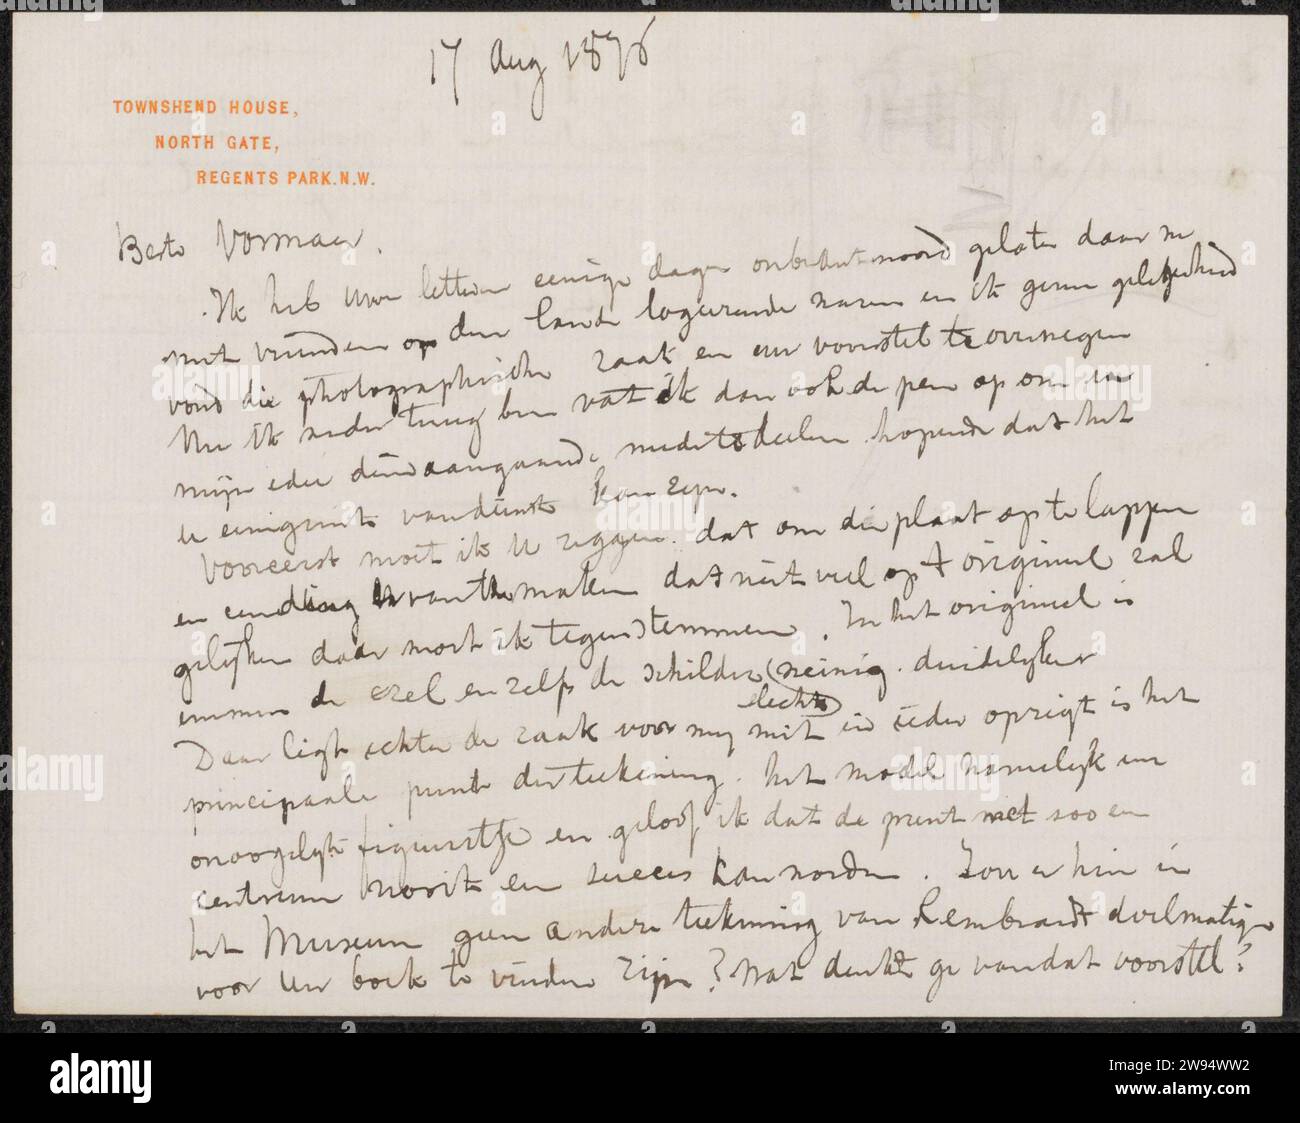 17 Aug 1876
TOWNSHEND HOUSE,
NORTH GATE,
REGENTS PARK.N.W.
Beste Vosmaer.
Ik heb uwe letteren eenige dagen onbeantwoord gelaten daar we
met vrienden op den lande logeerende waren en ik geen gelegenheid
vond die photographische zaak en uw voorstel te overwegen
Nu ik weder terug ben vat ik dan ook de pen op om u
mijn idee dienaangaande mede te deelen hopende dat het
u eenigzints van dienst kan zijn.
Vooreerst moet ik u zeggen dat om die plaat op te lappen
en een ding van te maken dat niet veel op 't origineel zal
gelijken daar moet ik tegen stemmen. In het origineel is
immers de ezel en zelfs de schilder weinig duidelijker
Daar ligt echter de zaak voor my niet in ieder opzigt is het
slechts
principaale punt der teekening. het model namelijk een
onoogelijk figuurtje en geloof ik dat de prent niet zoo en
centrum nooit en succes kan worden. Zou er hier in
het Museum geen andere teekening van Rembrandt doelmatig
voor uw boek te vinden zijn? Wat denkt ge van dat voorstel?
alamy
Image ID: 2W94WW2
www.alamy.com